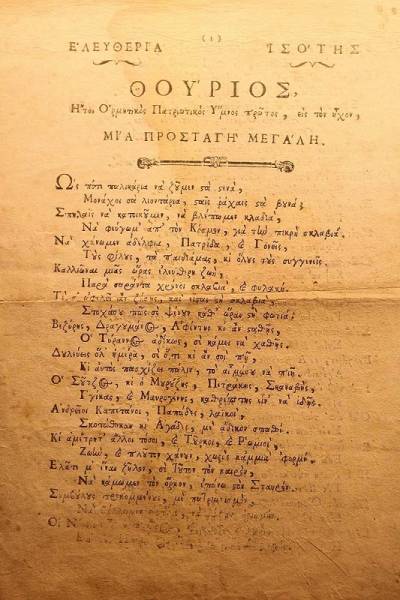 ( 1 )
ἘΛΕΥΘΕΡΙΑ ἸΣΟΤΗΣ
ΘΟΥΡΙΟΣ,
Ἤτοι Ὁρμητικὸς Πατριωτικὸς Ὕμνος πρῶτος, εἰς τὸν ἦχον,
ΜΙΑ ΠΡΟΣΤΑΓΗ ΜΕΓΑΛΗ.
Ὣς πότε παλικάρια νὰ ζοῦμεν στὰ στενά,
Μονάχοι σὰ λιοντάρια, σταῖς ράχαις στὰ βουνά;
Σπηλιαὶς νὰ κατοικοῦμεν, νὰ βλέπωμεν κλαδιά,
Νὰ φεύγωμ' ἀπ' τὸν Κόσμον, γιὰ τὴν πικρὴ σκλαβιά.
Νὰ χάνωμεν ἀδέλφια, Πατρίδα, ϗ Γονεῖς,
Τοὺς φίλους, τὰ παιδιά μας, κι ὅλους τοὺς συγγενεῖς
Καλλιῶναι μιᾶς ὥρας ἐλεύθερη ζωή,
Παρὰ σαράντα χρόνοι σκλαβιά, ϗ φυλακή.
Τί σ' ὠφελεῖ ἂν ζήσῃς, καὶ εἶσαι στὴ σκλαβιά,
Στοχάσου πῶς σὲ ψένουν καθ' ὥραν στὴ φωτιά;
Βεζύρης, Δραγουμάνος, Ἀφέντης κι ἂν σταθῇς,
Ὁ Τύραννος ἀδίκως, σὲ κάμει νὰ χαθῇς.
Δουλεύεις ὅλ' ἡμέρα, σὲ ὅ,τι κι ἂν σοὶ πῇ,
Κι αὐτὸς πασχίζει πάλιν, τὸ αἷμα σου νὰ πιῇ.
Ὁ Σούτζος, κι ὁ Μουρούζης, Πετράκης, Σκαναβῆς,
Γγίκας, ϗ Μαυρογένης, καθρέπτης εἶν' νὰ ἰδῇς.
Ἀνδρεῖοι Καπετάνοι, Παπάδες, λαϊκοί,
Σκοτώθηκαν κι Ἀγάδες, μὲ ἄδικον σπαθί.
Κι ἀμέτρητ' ἄλλοι τόσοι, ϗ Τοῦρκοι, ϗ Ῥωμιοί,
Ζωὴν, ϗ πλοῦτον χάνουν, χωρὶς καμμιὰ 'φορμή.
Ἐλᾶτε μ' ἕνα ζῆλον, σὲ Τοῦτον τὸν καιρόν,
Νὰ κάμωμεν τὸν ὅρκον, ἐπάνω στὸν Σταυρόν.